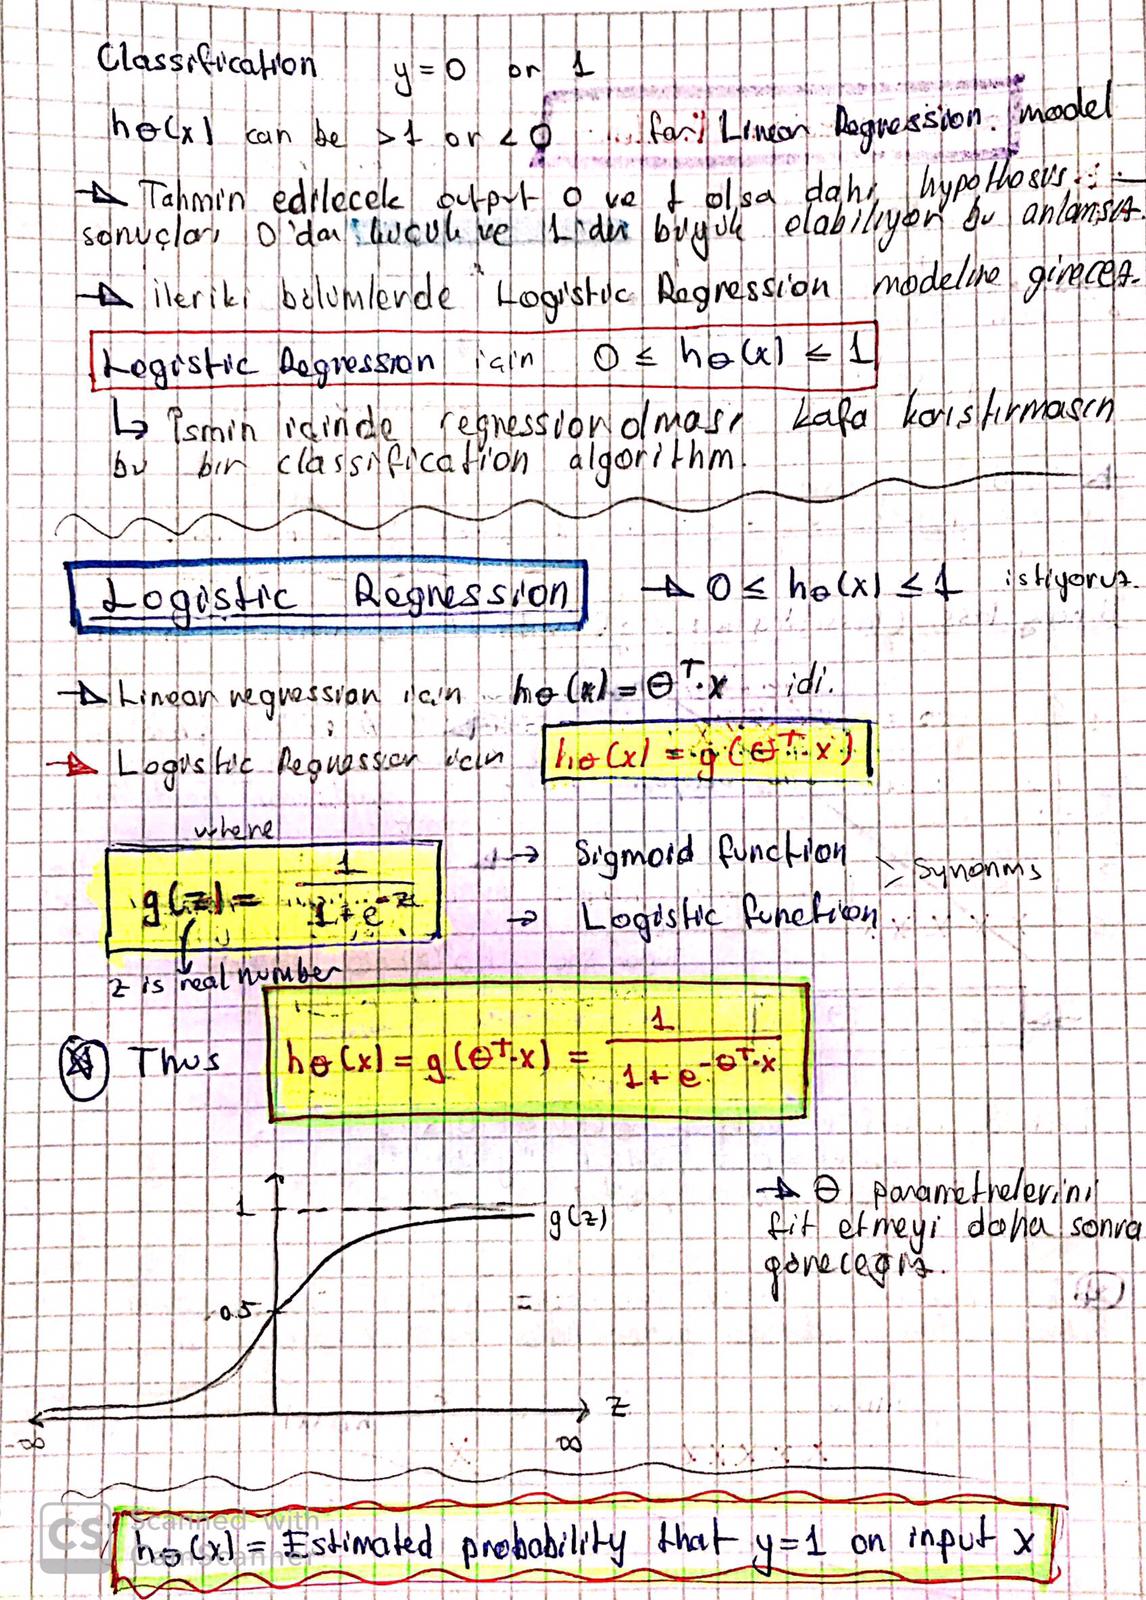 Classification y = 0 or 1
hθ(x) can be > 1 or < 0 ....for Linear Regression. model
→ Tahmin edilecek output 0 ve 1 olsa dahi, hypothosis
sonuçları 0'dan küçük ve 1'den büyük olabiliyor bu anlamsız.
→ ileriki bölümlerde Logistic Regression modeline girecez.
Logistic Regression için 0 ≤ hθ(x) ≤ 1
↳ İsmin içinde regression olması kafa karıştırmasın
bu bir classification algorithm.
Logistic Regression → 0 ≤ hθ(x) ≤ 1 istiyoruz.
→ Linear regression için hθ(x) = θᵀ.x idi.
→ Logistic Regression için hθ(x) = g(θᵀ.x)
where
g(z) = 1 / (1 + e^-z)
→ Sigmoid function
→ Logistic function
> Synonms
z is real number
Thus hθ(x) = g(θᵀ.x) = 1 / (1 + e^-θᵀ.x)
1
g(z)
0.5
=
z
-∞ ∞
→ θ parametrelerini
fit etmeyi daha sonra
göreceğiz.
CS Scanned with
CamScanner
hθ(x) = Estimated probability that y=1 on input x